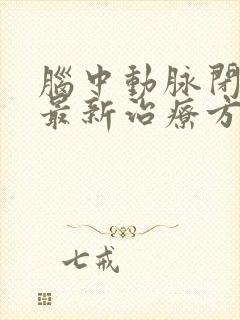 腦中動脉閉
最新治療方
七戒